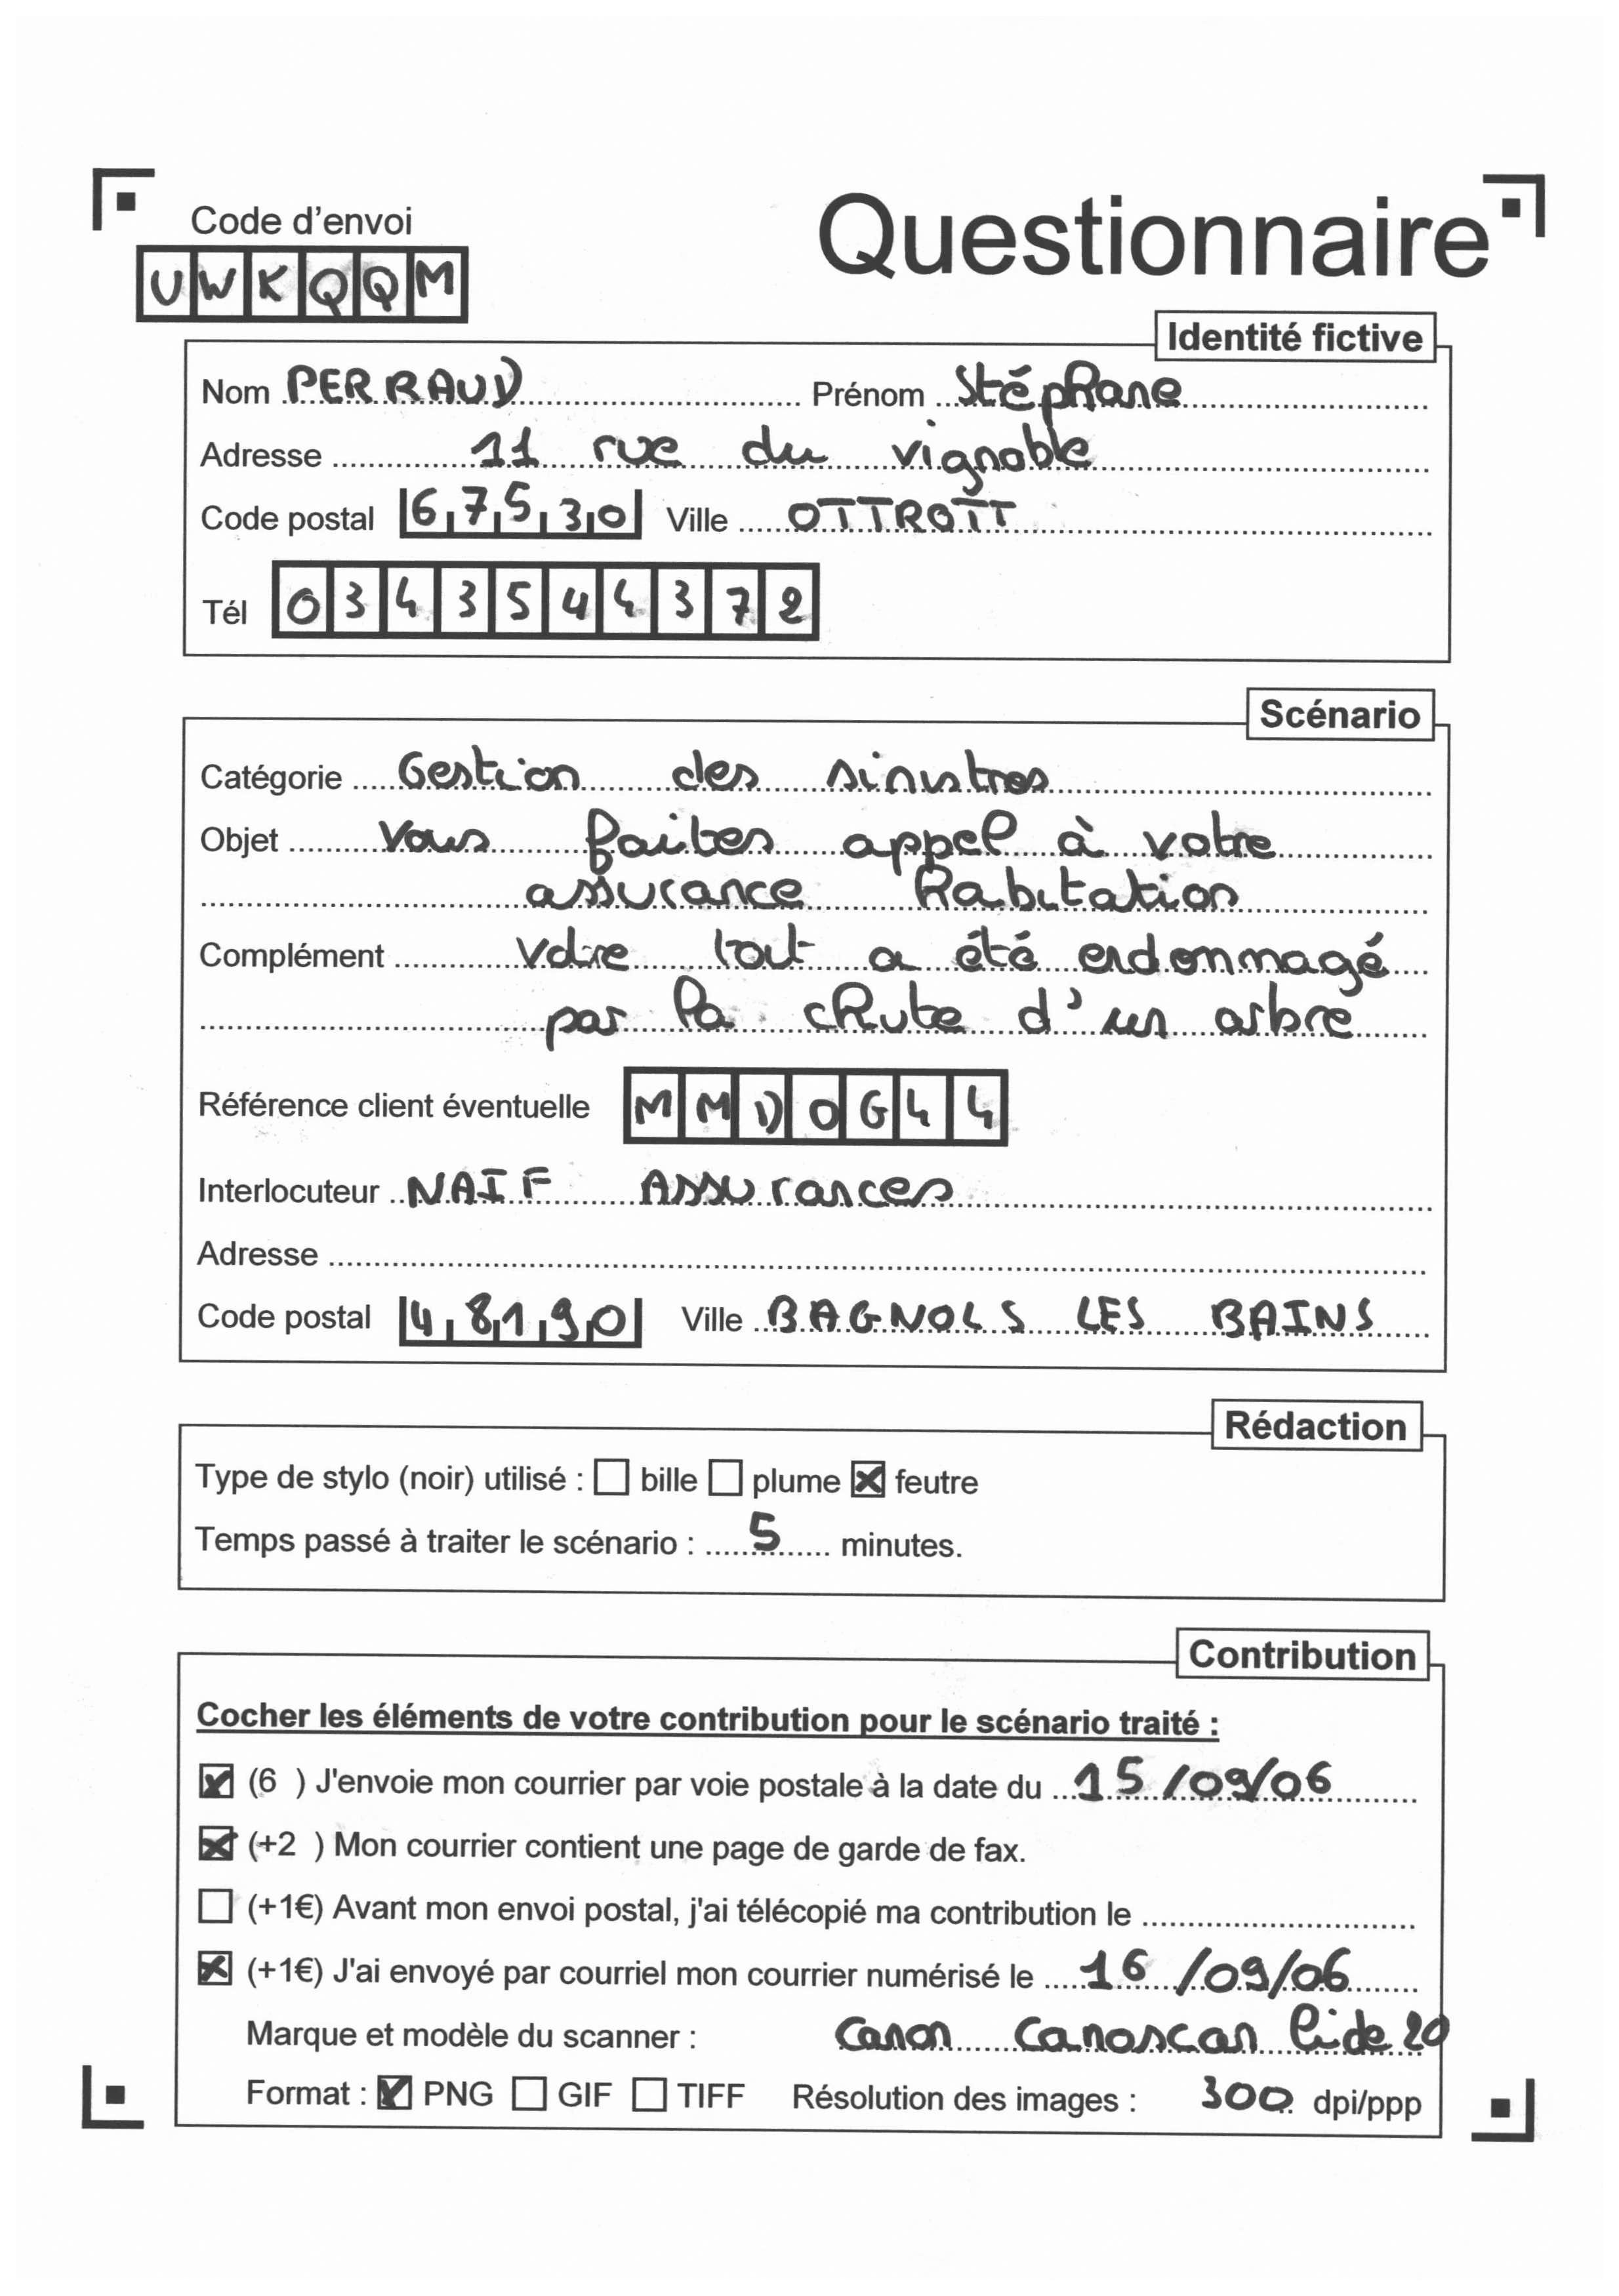 Code d'envoi
Questionnaire
UWKQQM
Identité fictive
Nom PERRAUD Prénom Stéphane
Adresse 11 rue du vignoble
Code postal 67530 Ville OTTROTT
Tél 0343544372
Scénario
Catégorie Gestion des sinistres
Objet Vous faites appel à votre
assurance habitation
Complément Votre toit a été endommagé
par la chute d'un arbre
Référence client éventuelle MMDOG44
Interlocuteur NAIF Assurances
Adresse
Code postal 48190 Ville BAGNOLS LES BAINS
Rédaction
Type de stylo (noir) utilisé : ☐ bille ☐ plume ☒ feutre
Temps passé à traiter le scénario : 5 minutes.
Contribution
Cocher les éléments de votre contribution pour le scénario traité :
☒ (6 ) J'envoie mon courrier par voie postale à la date du 15/09/06
☒ (+2 ) Mon courrier contient une page de garde de fax.
☐ (+1€) Avant mon envoi postal, j'ai télécopié ma contribution le
☒ (+1€) J'ai envoyé par courriel mon courrier numérisé le 16/09/06
Marque et modèle du scanner : Canon Canoscan lide 20
Format : ☒ PNG ☐ GIF ☐ TIFF Résolution des images : 300 dpi/ppp